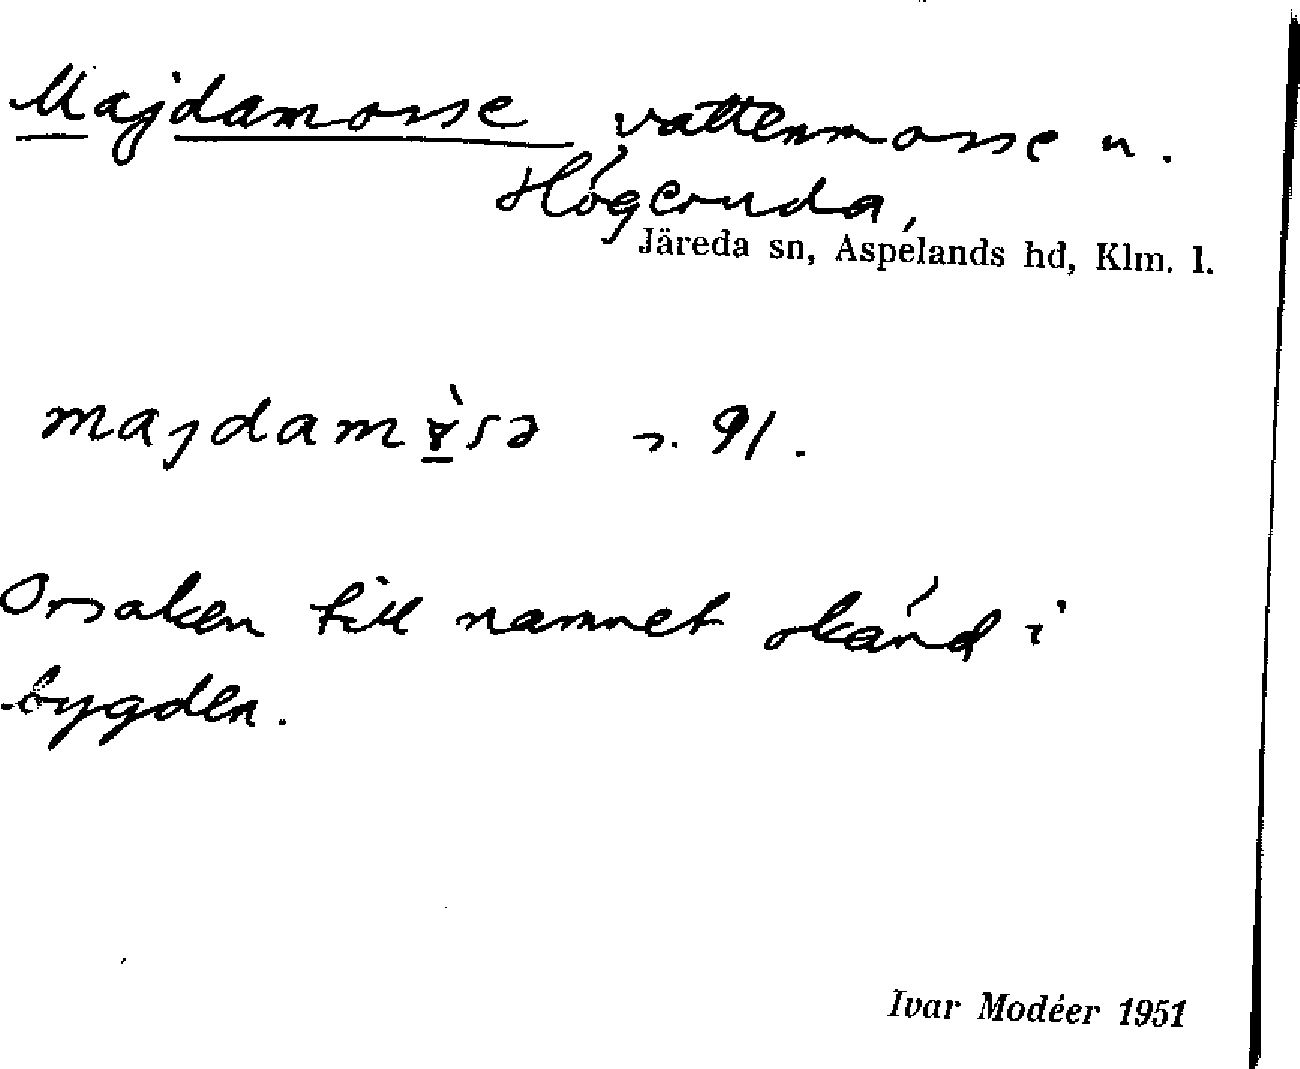 Majdamosse vattenmosse n.
Högeruda,
Järeda sn, Aspelands hd, Klm. l.
s. 91.
Orsaken till namnet okänd i
bygden.
Ivar Modéer 1951